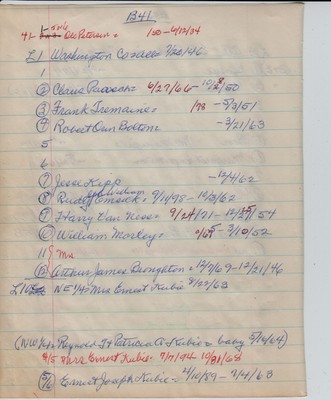 B41
41- Ole Peterson - 1/50 - 6/12/34
L1 Washington Cozad - 7/20/46
1
2 Claus Paasch - 6/27/66 - 10/8/50
3 Frank Tremaine - 1/78 - 5/3/51
4 Robert Owen Bolton - 3/21/63
5
6
7 Jesse Kipp - 12/4/62
8 Rudolf Tomsick - 9/10/95 - 10/3/62
9 Harry Van Ness - 9/24/71 - 12/25/54
10 William Morley - 3/10/52
11 Mrs
12 Arthur James Broughton - 12/7/69 - 12/21/46
NE 1/4 - Mrs Ernest Kubic 8/22/63
(NW Raymond J & Patricia A Kubic - baby 5/10/64)
Mrs Ernest Kubic - 7/7/94 10/21/68
5/6 Ernest Joseph Kubic - 2/10/89 - 2/4/63